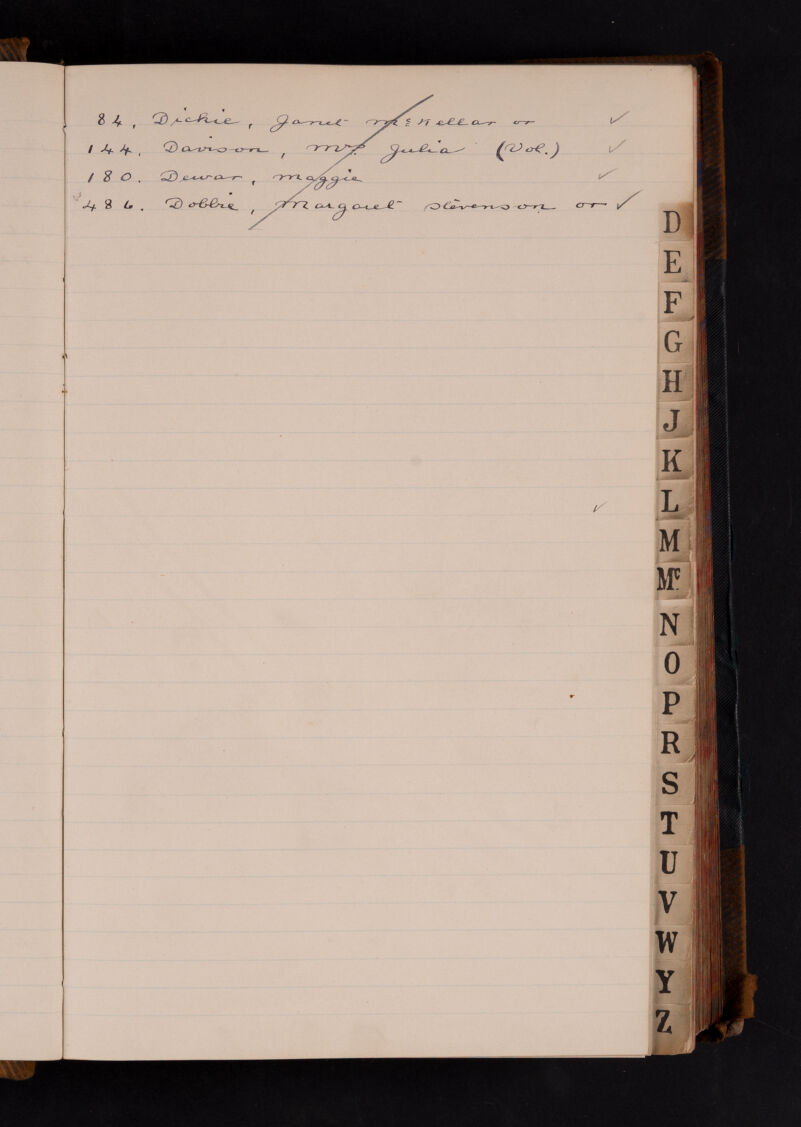 84, Dickie, Janet McKellar or ✓
144. Davison, Mrs Julia (Vol.) ✓
180. Dewar, Maggie ✓
486. Dobbie, Margaret Stevenson or ✓
✓
D
E
F
G
H
J
K
L
M
Mc
N
O
P
R
S
T
U
V
W
Y
Z